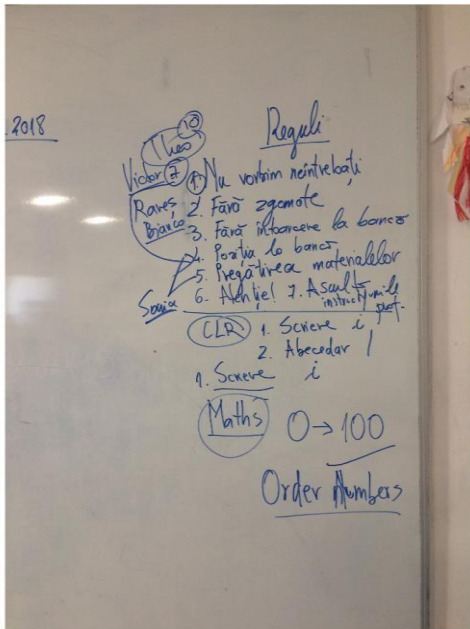 .2018
Reguli
Theo 10
Victor 7
Rareș
Bianca
Sonia
1. Nu vorbim neîntrebați
2. Fără zgomote
3. Fără întoarcere la bancă
4. Poziția la bancă
5. Pregătirea materialelor
6. Atenție! 7. Ascult
instrucțiunile
CLR 1. Scriere i
2. Abecedar
1. Scriere i
Maths 0→100
Order Numbers